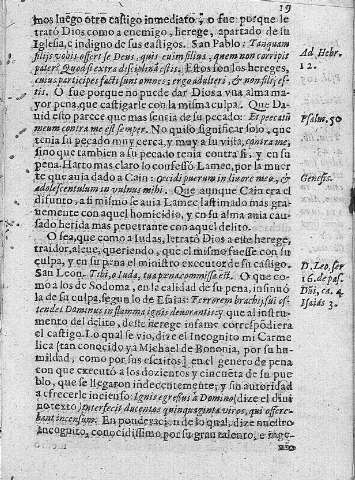 19
mos luego otro castigo inmediato; o fue porque le
trató Dios como a enemigo, herege, apartado de su
Iglesia, e indigno de sus castigos. San Pablo: Tanquam
filijs vobis offert se Deus, quis enim filius, quem non corripit
pater? Quod si extra disciplina estis. Estos son los hereges,
cuius participes facti sunt omnes: ergo adulteri, & non filij es-
tis. O fue porque no puede dar Dios a vna alma ma-
yor pena, que castigarle con la misma culpa. Que Da-
uid esto parece que mas sentia de su pecado: Et peccatũ
meum contra me est semper. No quiso significar solo, que
tenia su pecado muy cerca, y muy a su vista, contra me,
sino que tambien a su pecado tenia contra si, y en su
pena. Harto mas claro lo confessò Lamec, por la muer
te que auia dado a Cain: Occidi puerum in liuore meo, &
adolescentulum in vulnus mihi. Que aunque Cain era el
difunto, a si mismo se auia Lamec lastimado mas gra-
uemente con aquel homicidio, y en su alma auia cau-
sado herida mas penetrante con aquel delito.
O sea, que como a Iudas, le trató Dios a este herege,
traidor, aleue, queriendo, que el mismo fuesse con su
culpa, y en su pena el ministro executor de su castigo.
San Leon. Tibi, o Iuda, tua pena commissa est. O que co-
mo a los de Sodoma, en la calidad de su pena, insinuò
la de su culpa, segun lo de Esaias: Terrorem brachij sui os-
tendet Dominus in flamma ignis deuorantis: y que al instru-
mento del delito, de este herege infame correspõdiera
el castigo. Lo qual se vio, dize el Incognito mi Carme
lita (tan conocido ya Michael de Bononia, por su hu-
mildad, como por sus escritos) en el genero de pena
con que executó a los dozientos y cincuẽta de su pue
blo, que se llegaron indecentemente, y sin autoridad
a ofrecerle incienso: Ignis egressus a Domino (dize el diui
no texto) interfecit ducentos quinquaginta viros, qui offere-
bant incensum. En ponderacion de lo qual, dize nuestro
Incognito, conocidissimo por su gran talento, e inge-
Ad Hebr.
12.
Psalm. 50
Genesis.
D. Leo, ser
16. de pas.
Dñi, ca. 4
Isaiæ 3.